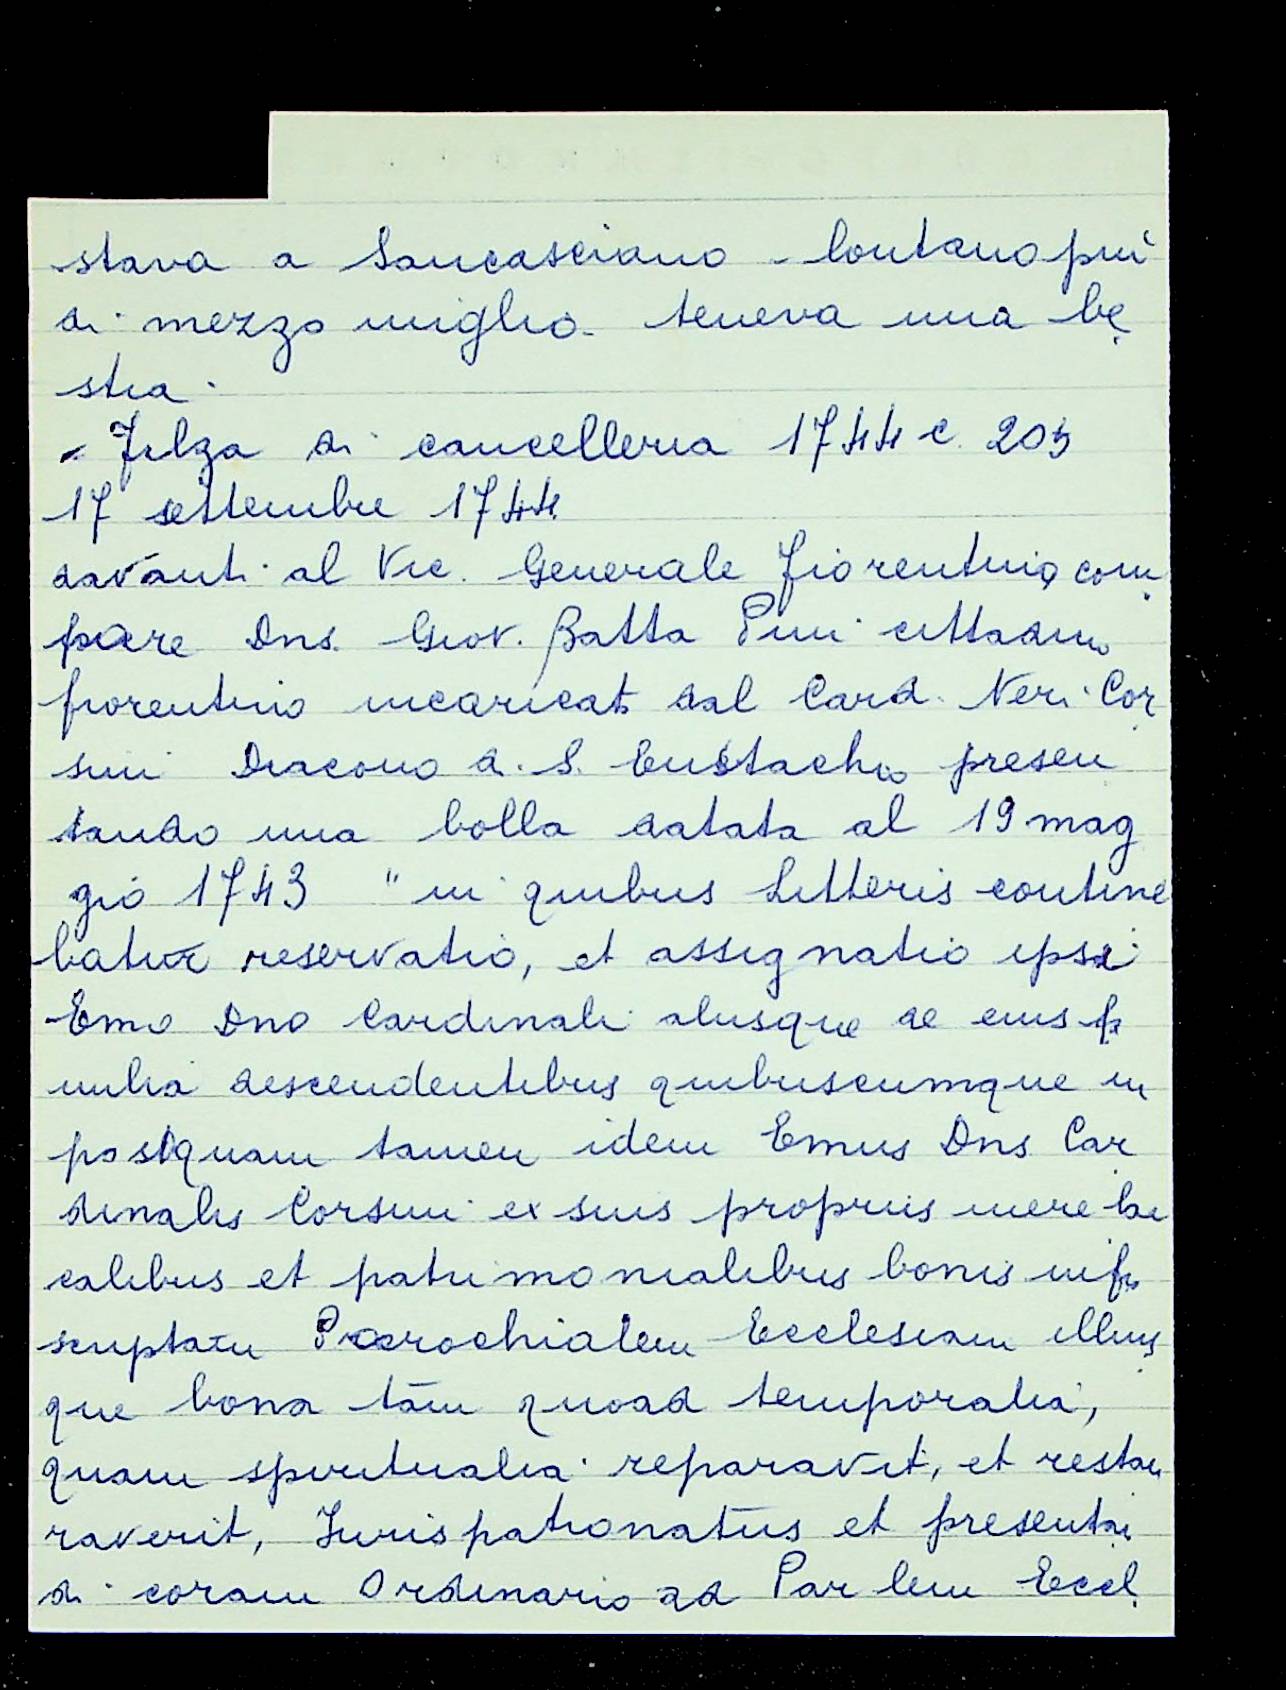 stava a Sancasciano - lontano più
di mezzo miglio - teneva una be
stia.
- Filza di cancelleria 1744 c. 205
17 settembre 1744.
davanti al Vic. Generale fiorentino com
pare Dns. Giov. Batta Pini cittadino
fiorentino incaricato dal Card. Neri Cor
sini Diacono d. S. Eustachio presen
tando una bolla datata al 19 mag
gio 1743 "in quibus Litteris contine
batur reservatio, et assignatio ipsi
Emo Dno Cardinali aliisque de eius fa
milia descendentibus quibuscumque in
postquam tamen idem Emus Dns Car
dinalis Corsini ex suis propriis mere lai
calibus et patrimonialibus bonis infra
scriptam Parochialem Ecclesiam illius
que bona tām quoad temporalia,
quam spiritualia reparavit, et restau
raverit, Jurispatronatūs et presentan
di coram Ordinario ad Par lem Eccl.